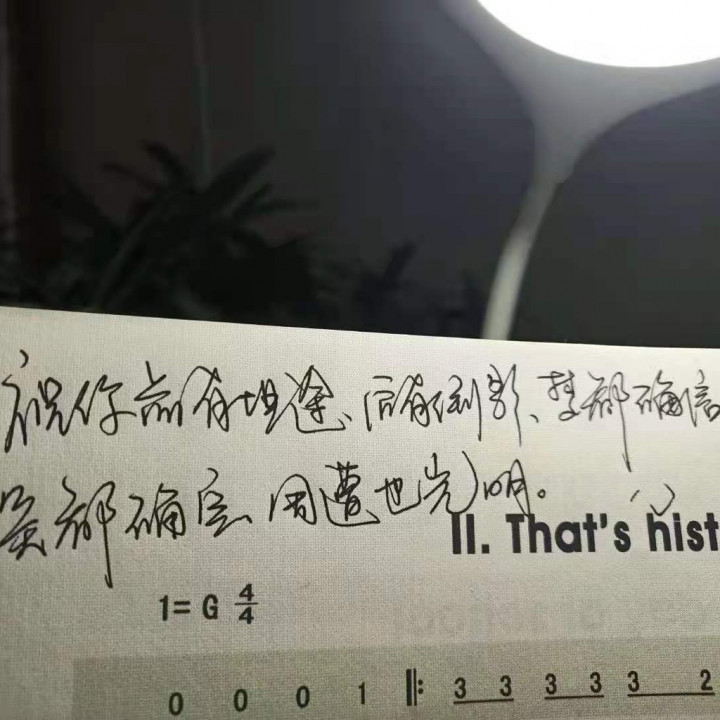 祝你前有坦途、后有倒影、梦都确信
爱都确定、周遭也光明。
II. That's hist
1= G 4/4
0 0 0 1 ‖: 3 3 3 3 3 2